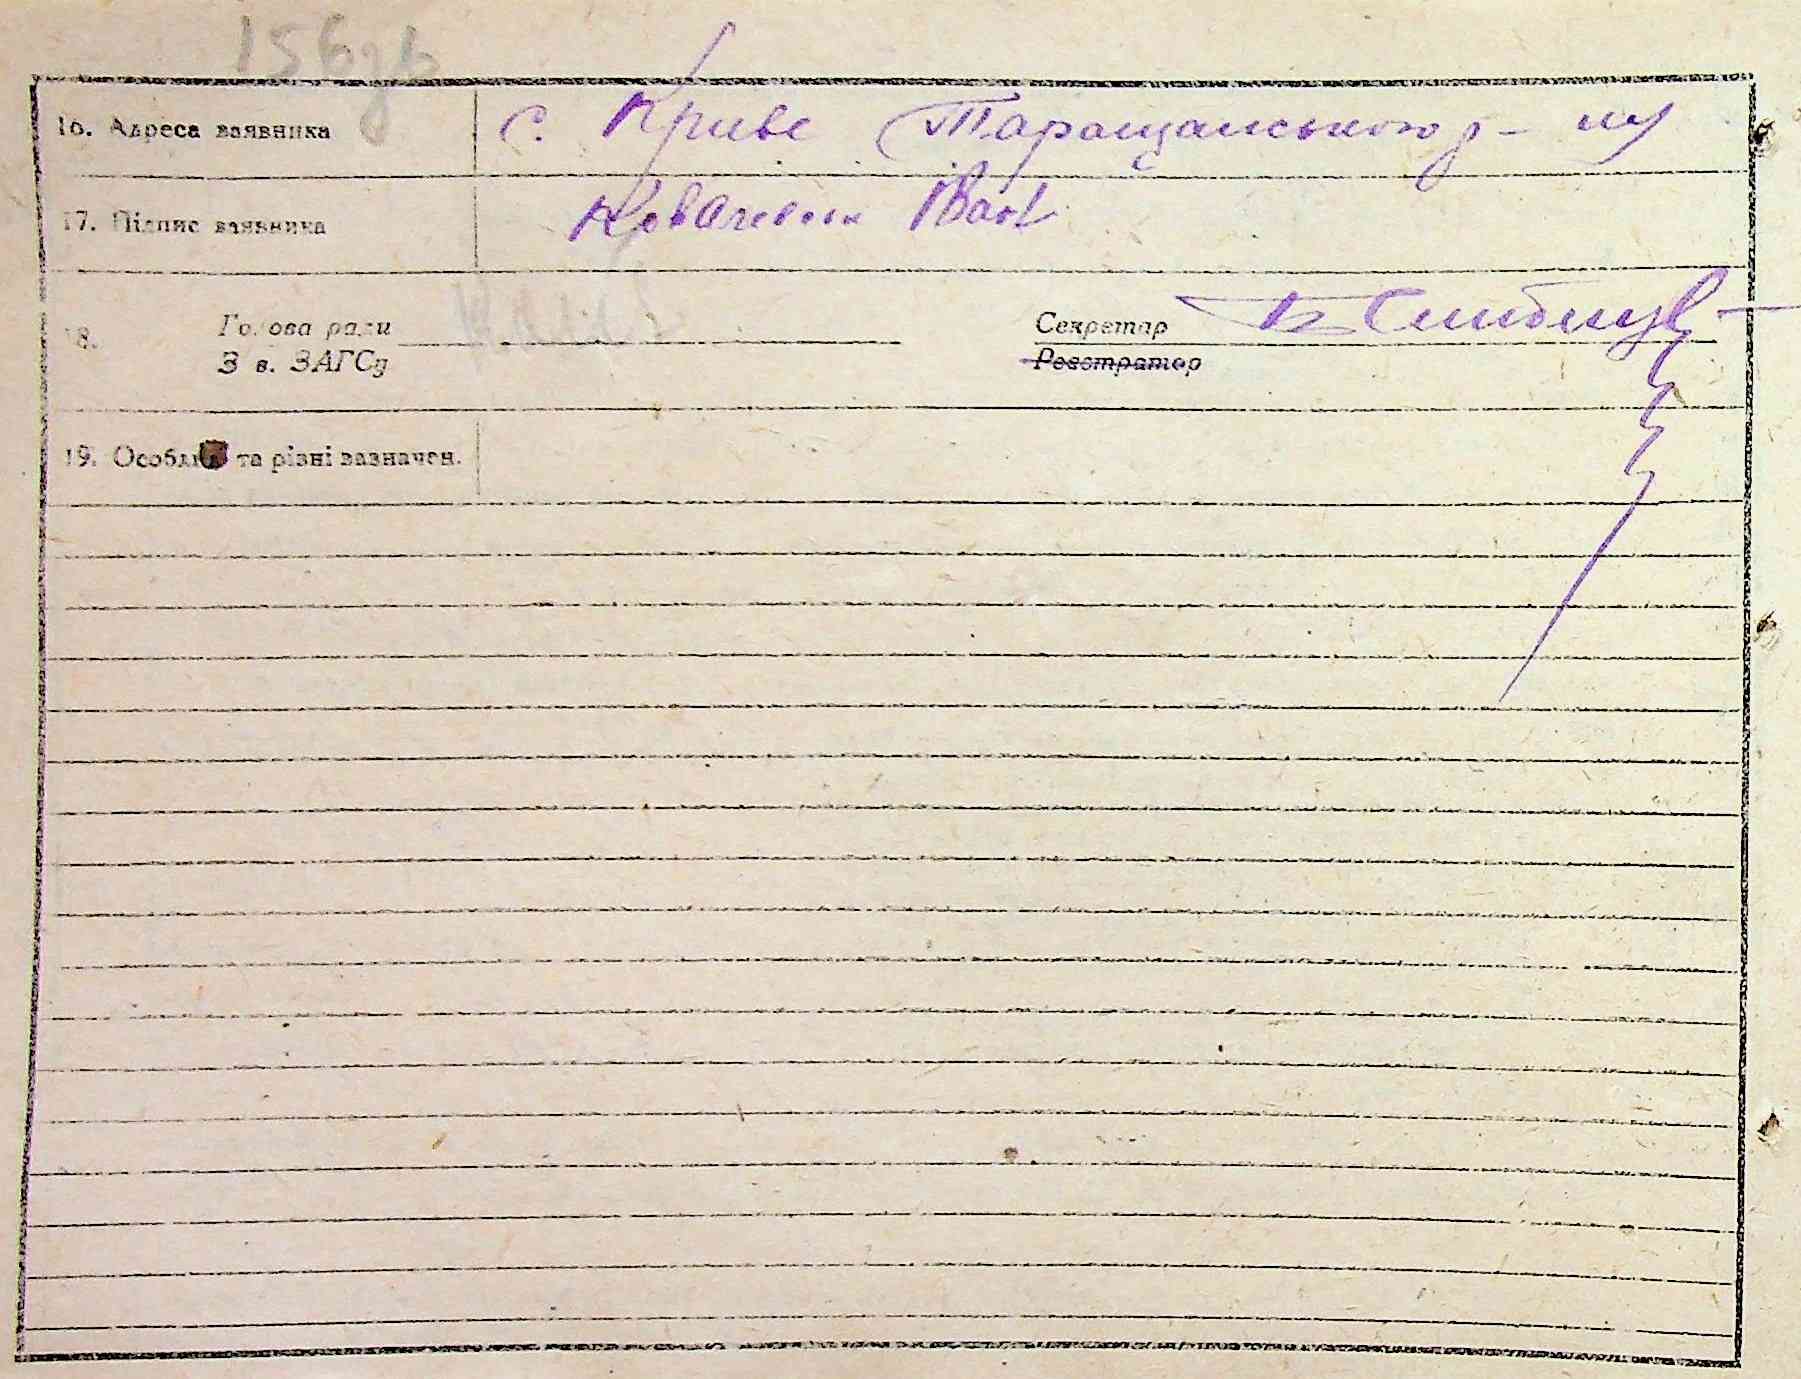 156
16. Адреса заявника с. Криве Таращанського р-ну
17. Підпис заявника Іван
18. Голова ради Секретар
З в. ЗАГСу Реєстратор
19. Особливі та різні зазначен.